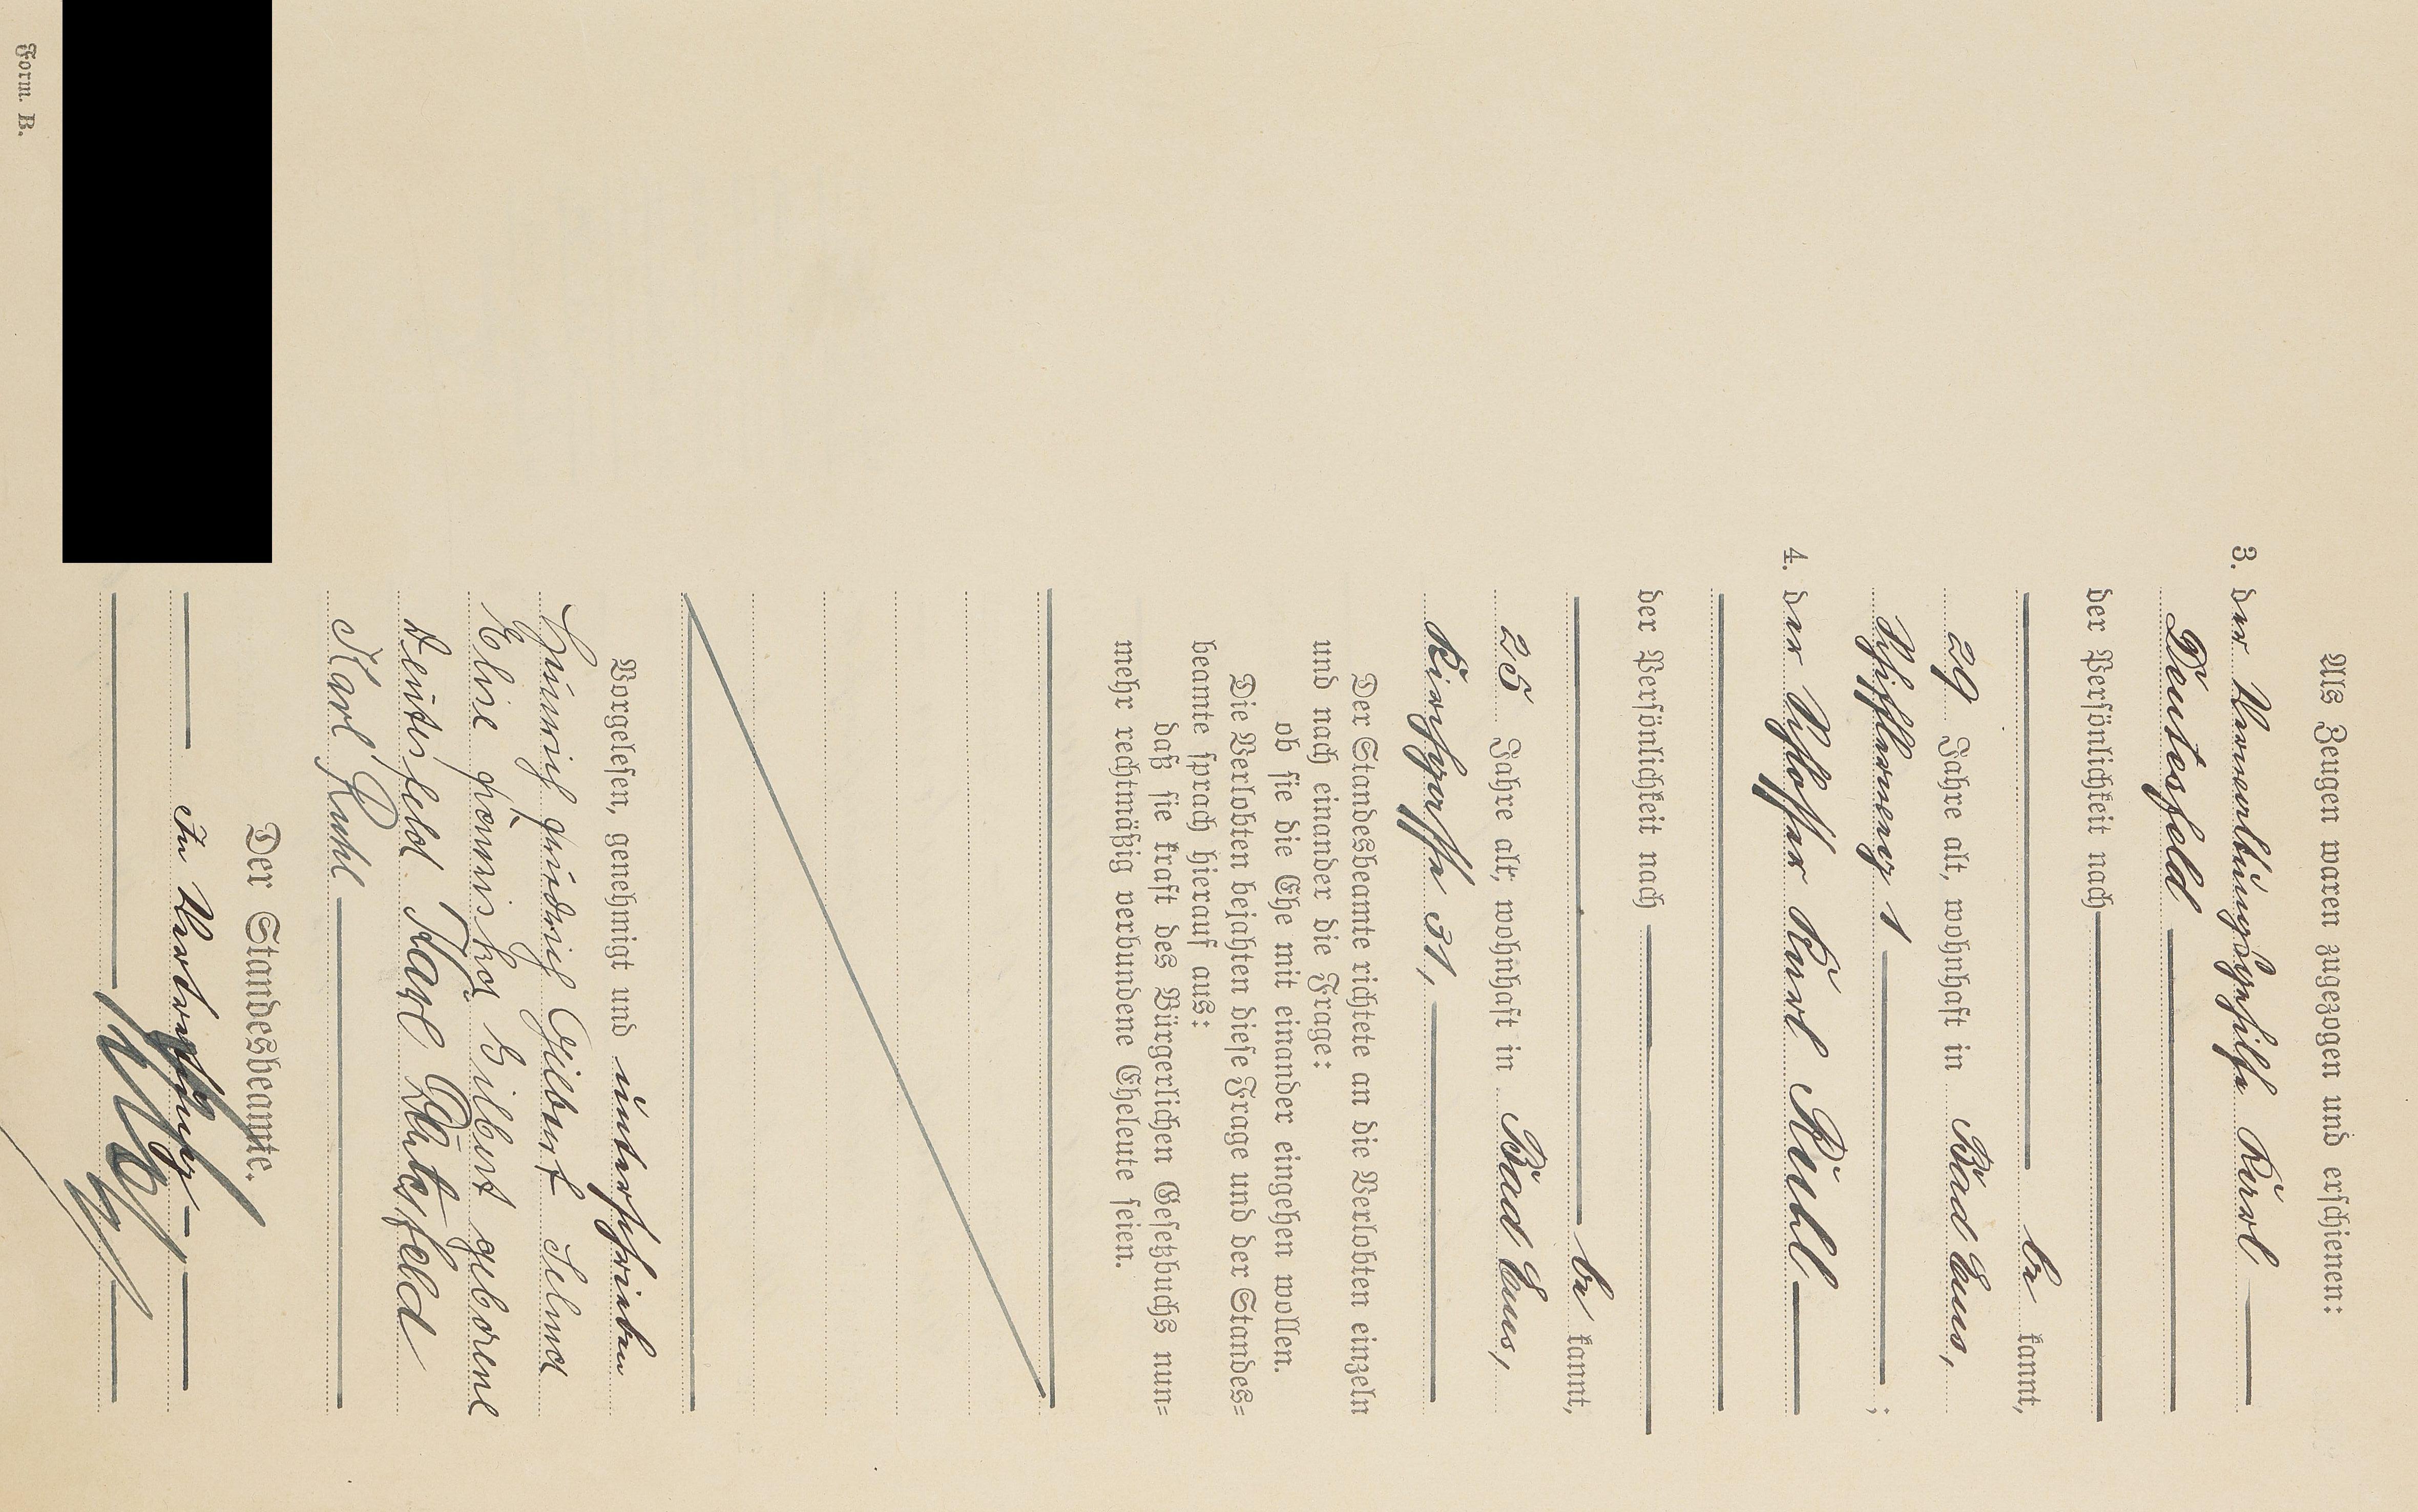 Als Zeugen waren zugezogen und erschienen:
3. der Verwaltungsgehilfe Karl
Deutesfeld
der Persönlichkeit nach
be kannt,
29 Jahre alt, wohnhaft in Bad Ems,
Schifflerweg 1 ;
4. der Schlosser Karl Ruhl
der Persönlichkeit nach
be kannt,
25 Jahre alt, wohnhaft in Bad Ems,
Kirchgasse 31,
Der Standesbeamte richtete an die Verlobten einzeln
und nach einander die Frage:
ob sie die Ehe mit einander eingehen wollen.
Die Verlobten bejahten diese Frage und der Standes=
beamte sprach hierauf aus:
daß sie kraft des Bürgerlichen Gesetzbuchs nun=
mehr rechtmäßig verbundene Eheleute seien.
Vorgelesen, genehmigt und unterschrieben
Heinrich Friedrich Gilbert Selma
Elise Franziska Gilbert geborene
Deutesfeld Karl Deutesfeld
Karl Ruhl
Der Standesbeamte.
In Vertretung
Form. B.